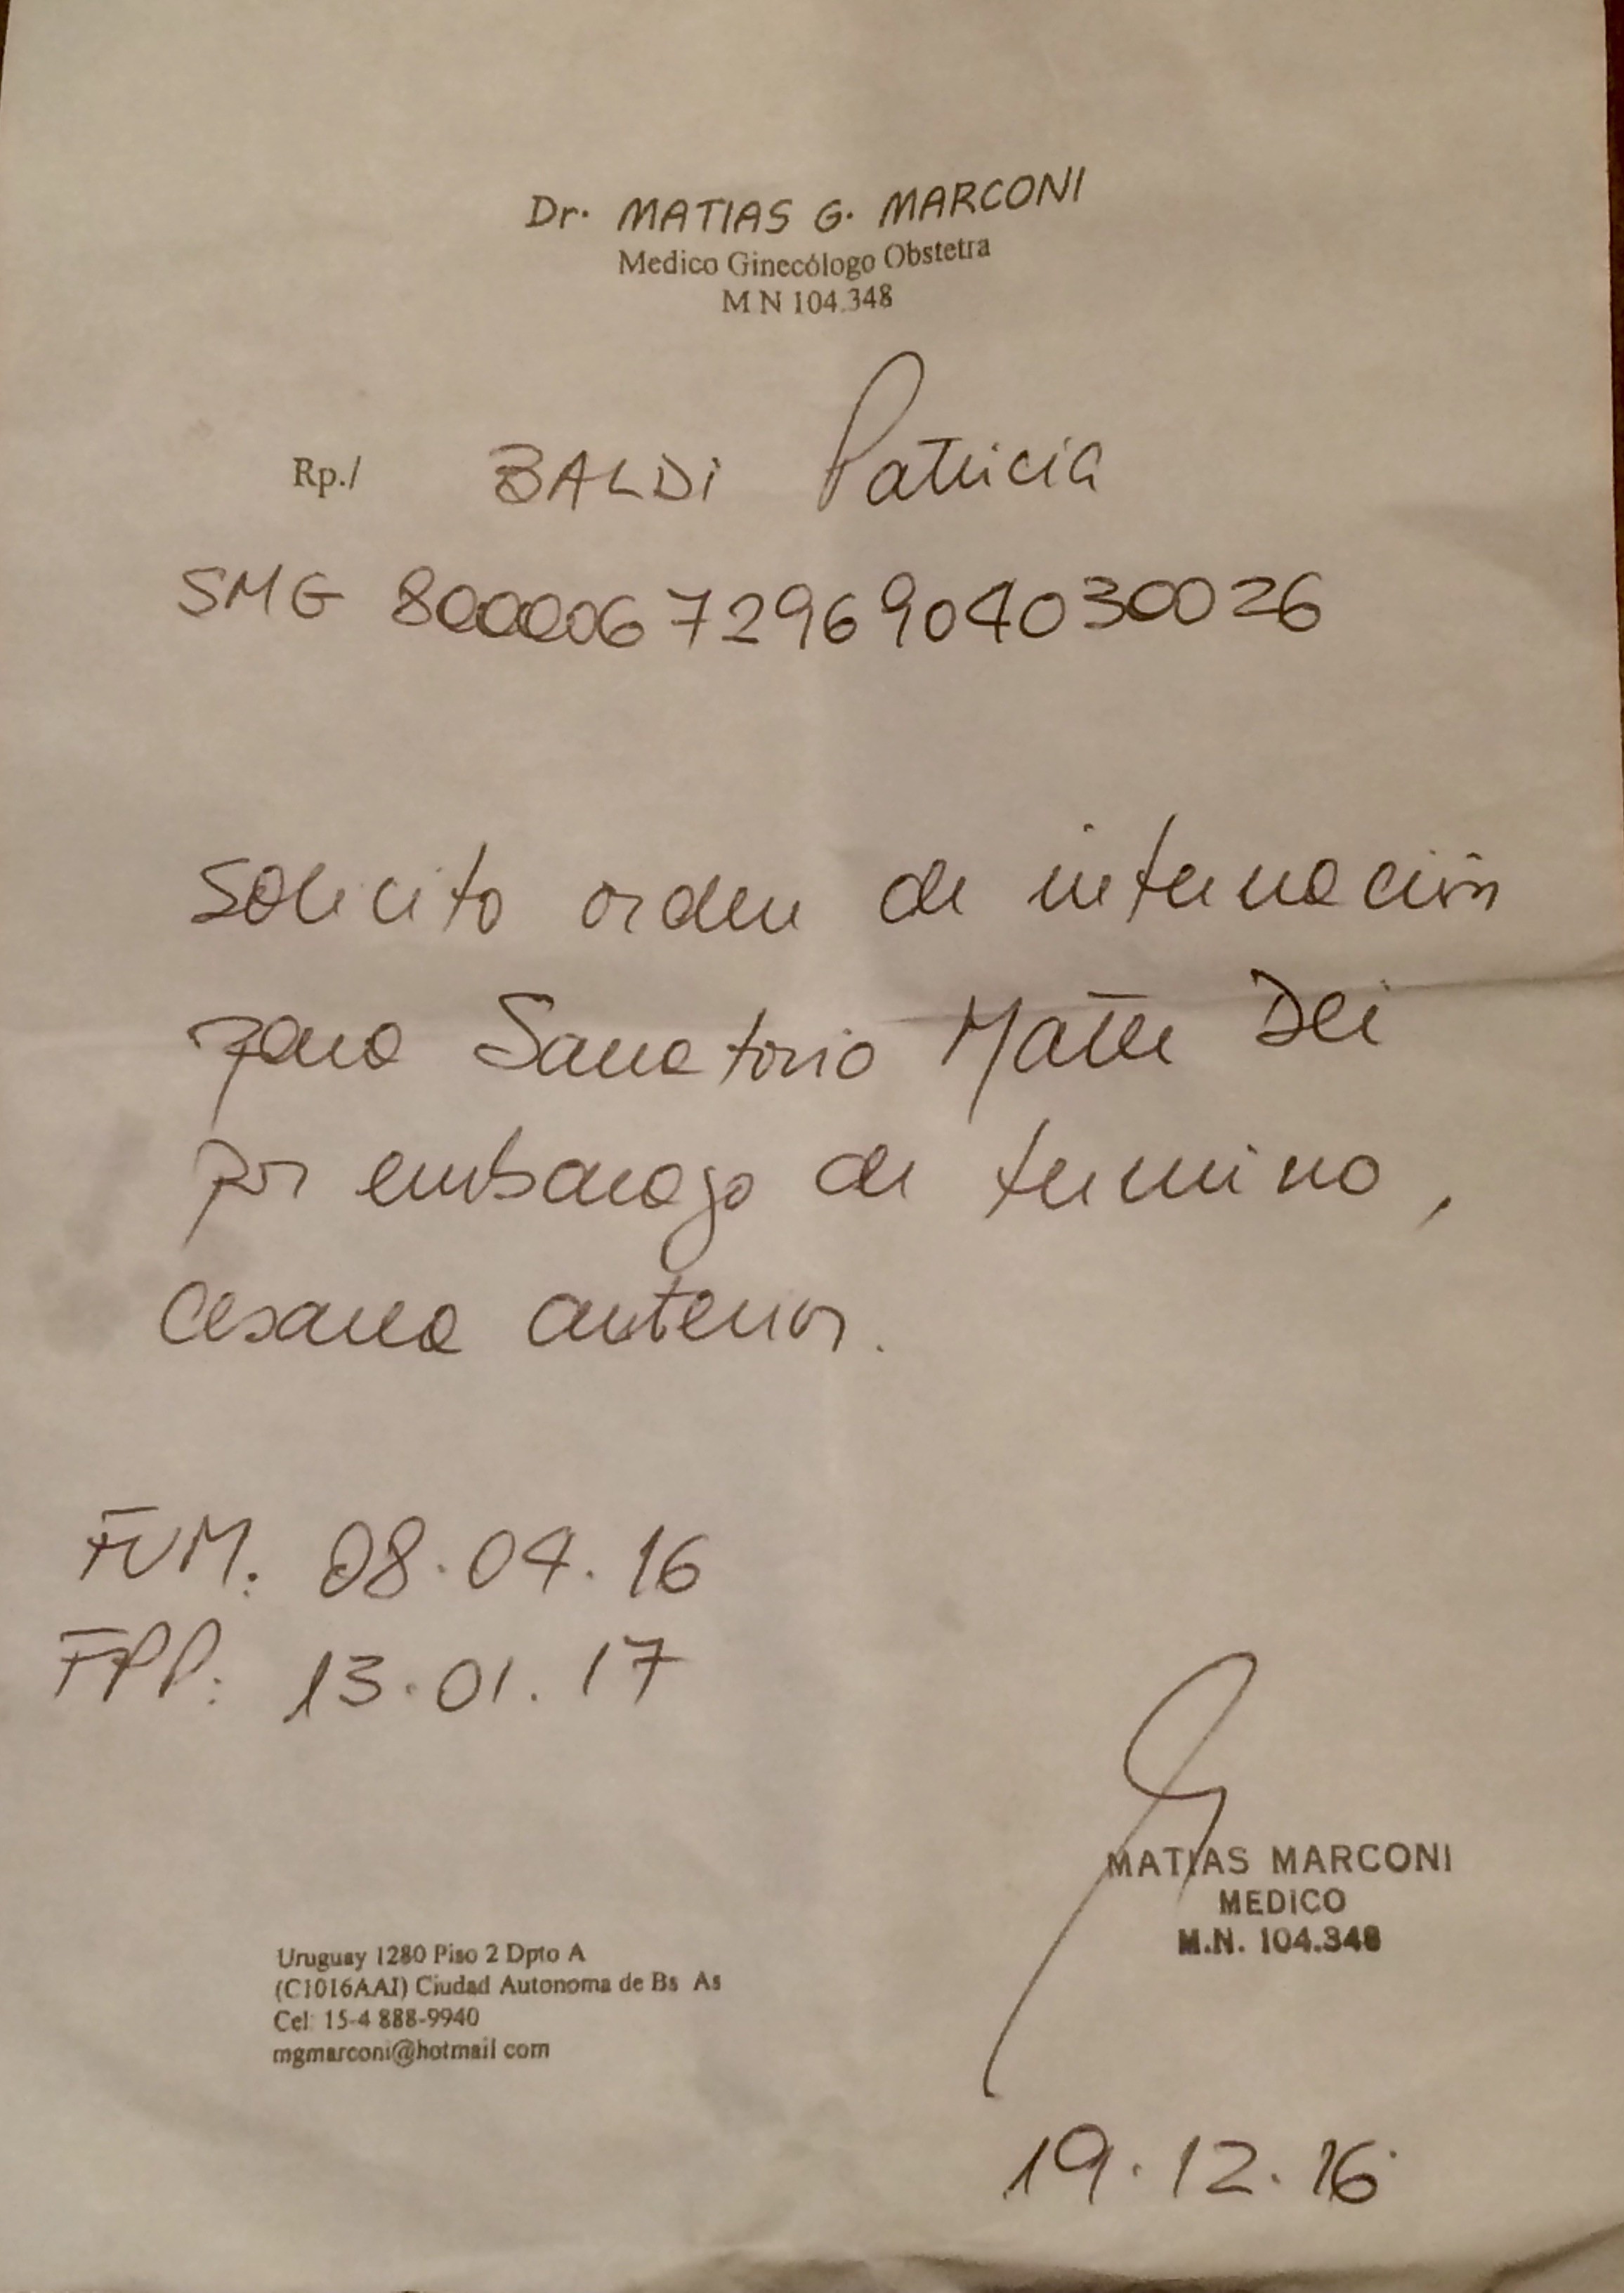 Dr. MATIAS G. MARCONI
Medico Ginecólogo Obstetra
M N 104.348
Rp./ BALDi Patricia
SMG 8000067296904030026
Solicito orden de internación
para Sanatorio Mater Dei
por embarazo de termino,
cesarea anterior.
FUM: 08.04.16
FPP: 13.01.17
MATIAS MARCONI
MEDICO
M.N. 104.348
Uruguay 1280 Piso 2 Dpto A
(C1016AAI) Ciudad Autonoma de Bs As
Cel: 15-4 888-9940
mgmarconi@hotmail com
19.12.16